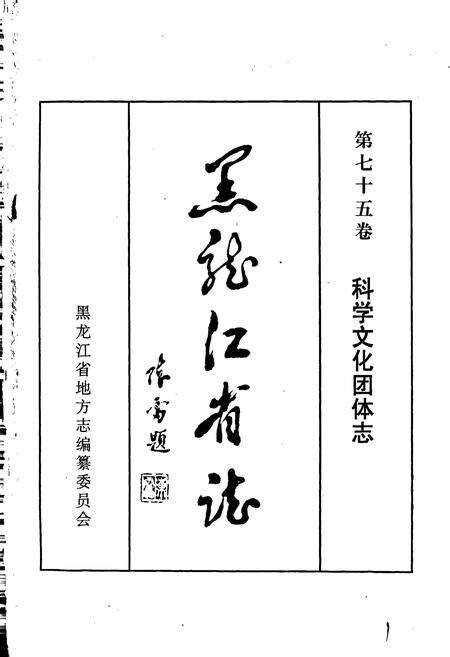 第七十五卷 科学文化团体志
黑龙江省志
陈雷题
黑龙江省地方志编纂委员会